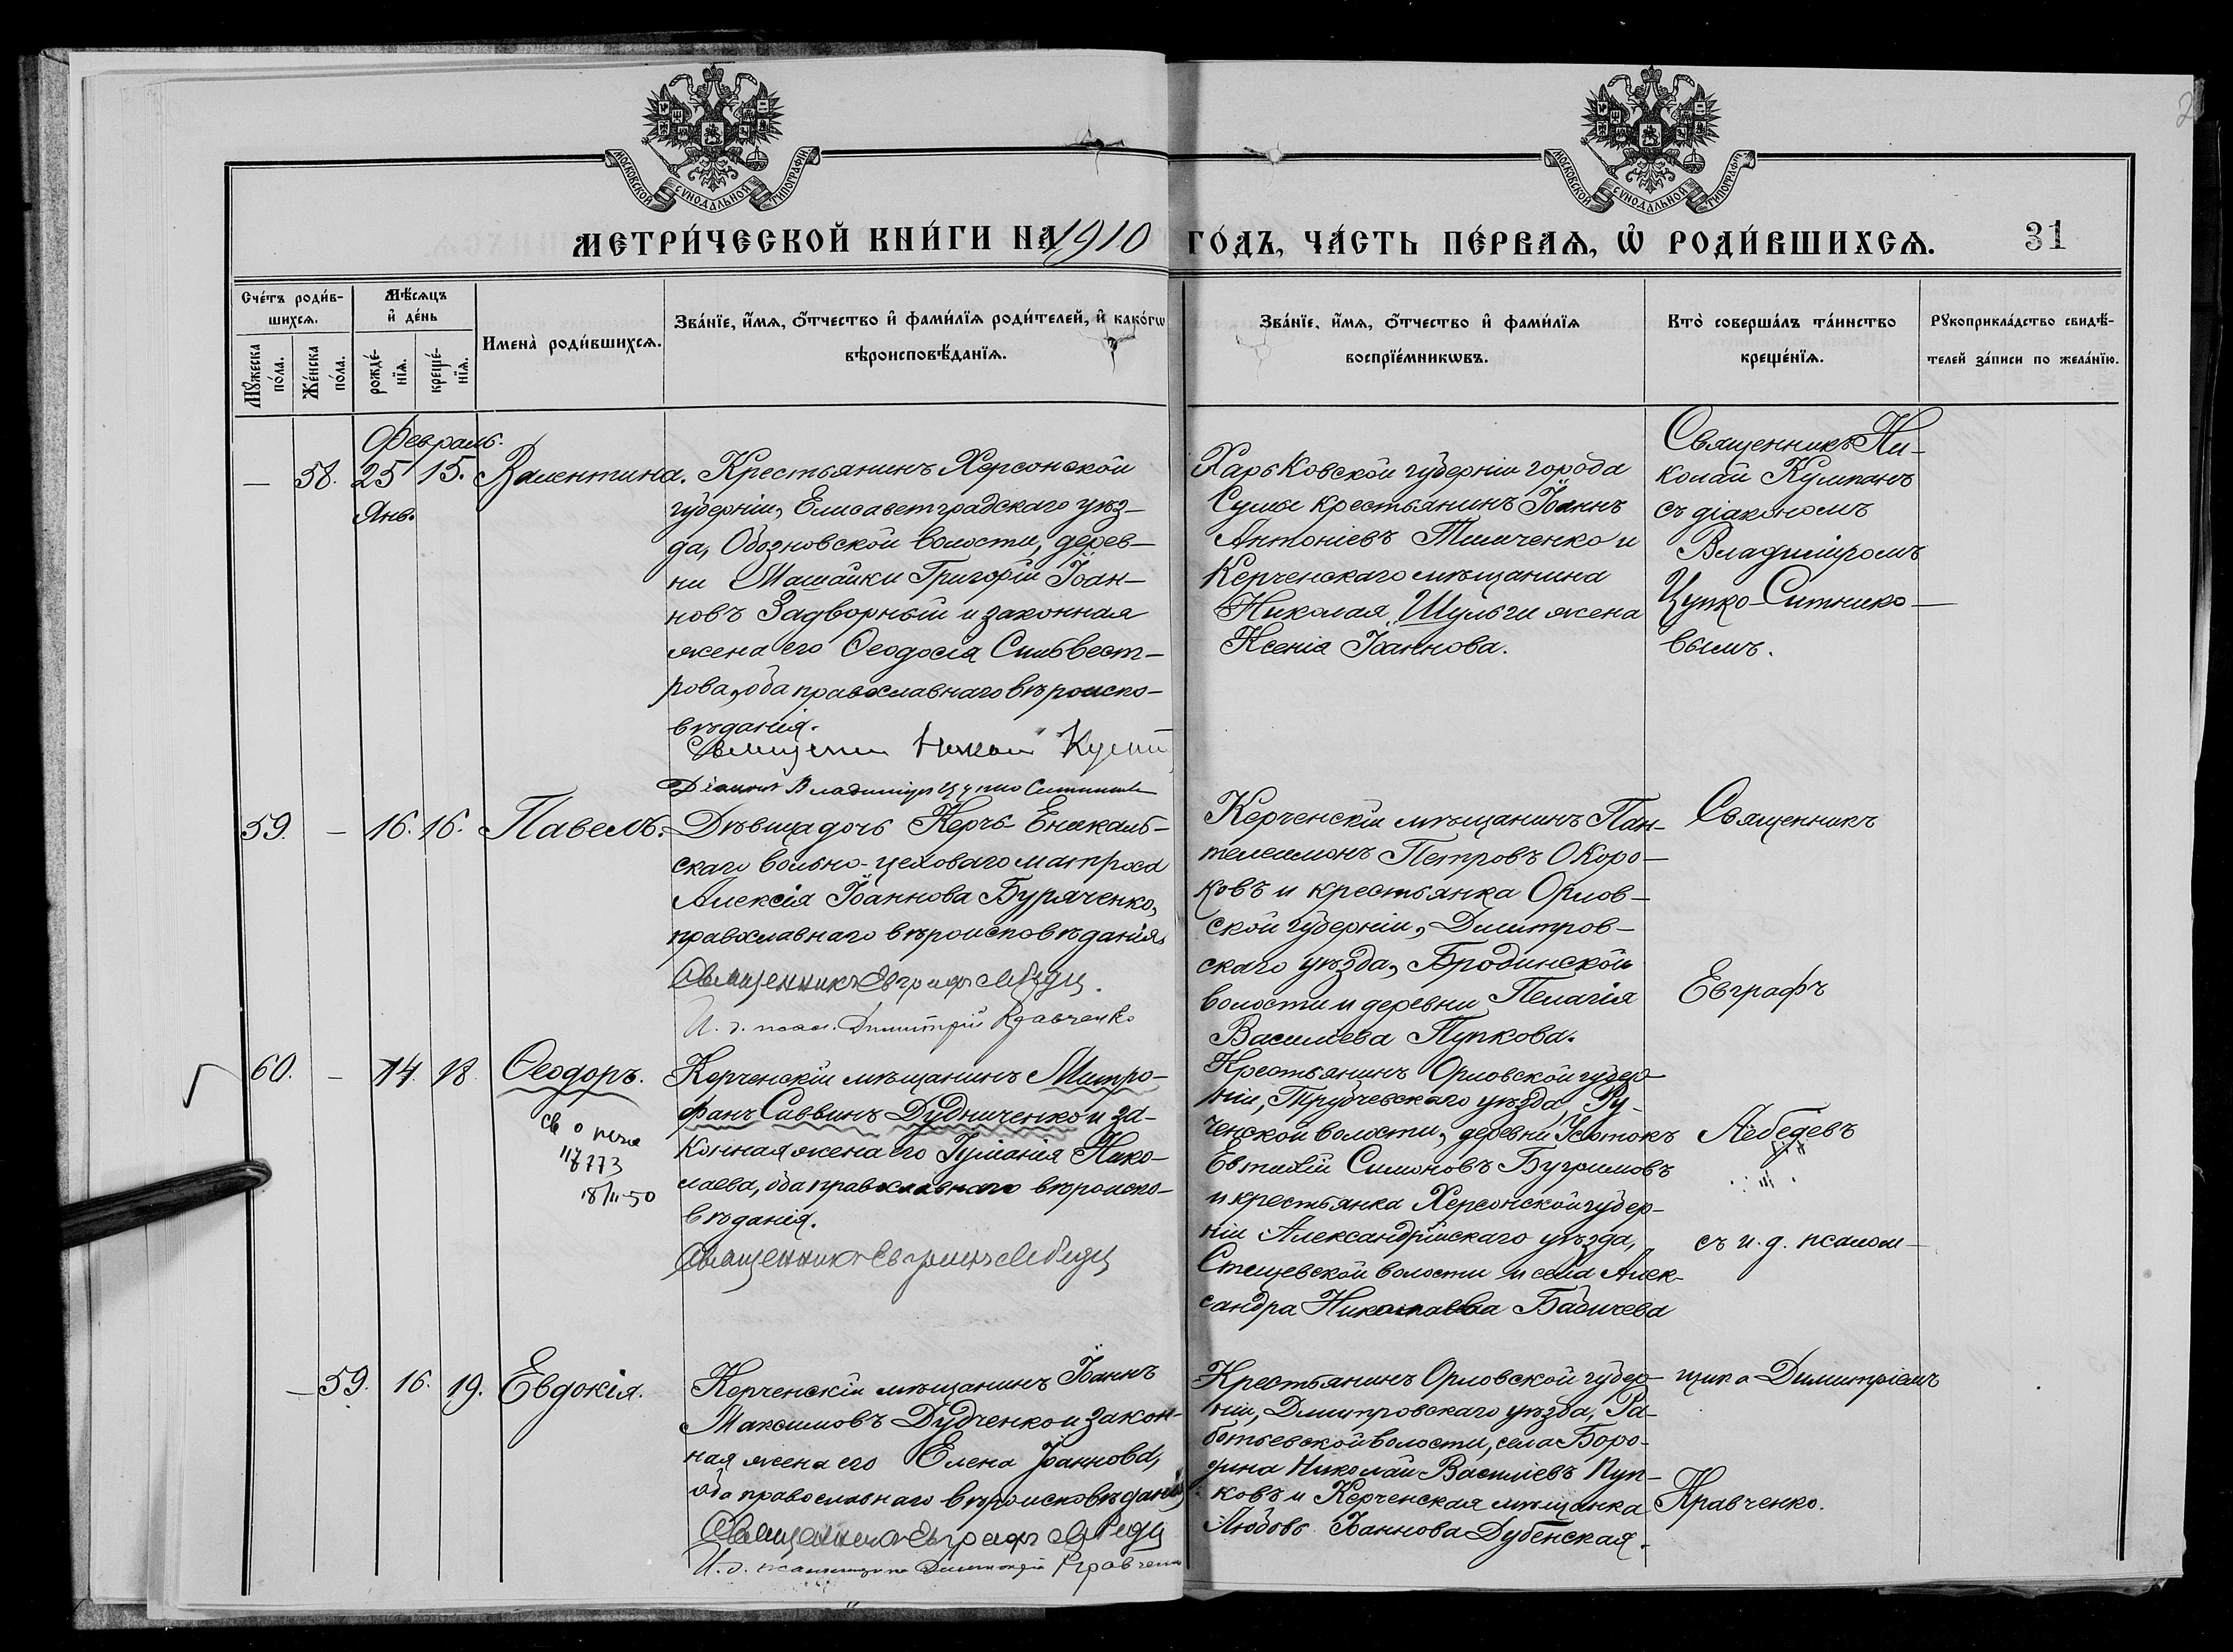 МОСКОВСКОЙ СУНОДАЛЬНОЙ ТИПОГРАФІИ
МОСКОВСКОЙ СУНОДАЛЬНОЙ ТИПОГРАФІИ
МЕТРИ́ЧЕСКОЙ КНИ́ГИ НА 1910 ГО́ДЪ, ЧА́СТЬ ПЕ́РВАѦ, Ѡ҆ РОДИ́ВШИХСѦ. 31
Сче́тъ роди́в-
шихсѧ.
Мꙋ́жеска по́ла.
Же́нска по́ла.
Мѣ́сѧцъ
и҆ де́нь
рожде́-
нїѧ.
креще́-
нїѧ.
Имена̀ роди́вшихсѧ.
Зва́нїе, и҆́мѧ, ѻ҆́тчество и҆ фами́лїѧ роди́телей, и҆ како́гѡ
вѣроисповѣ́данїѧ.
Зва́нїе, и҆́мѧ, ѻ҆́тчество и҆ фами́лїѧ
воспрїе́мникѡвъ.
Кто̀ соверша́лъ та́инство
креще́нїѧ.
Рꙋкоприкла́дство свидѣ́-
телей за́писи по жела́нїю.
Февраль.
— 58. 25 15. Валентина.
Янв.
Крестьянинъ Херсонской
губерніи, Елисаветградскаго уѣз-
да, Обозновской волости, дерев-
ни Машайки Григорій Іоан-
новъ Задворный и законная
жена его Ѳеодосія Сильвест-
рова, оба православнаго вѣроиспо-
вѣданія.
Священникъ Николай Кумпан
Діаконъ Владиміръ Цупко Ситников
Харьковской губерніи города
Сумы крестьянинъ Іоаннъ
Антоніевъ Тимченко и
Керченскаго мѣщанина
Николая Шульги жена
Ксенія Іоаннова.
Священникъ Ни-
колай Кумпанъ
съ діакономъ
Владиміромъ
Цупко-Ситнико-
вымъ.
59. — 16. 16. Павелъ.
Дѣвица дочь Керчь-Еникаль-
скаго вольно-цеховаго матроса
Алексія Іоаннова Буряченко,
православнаго вѣроисповѣданія.
Священникъ Евграфъ Лебедев.
И. д. псал. Димитрій Кравченко
Керченскій мѣщанинъ Пан-
телеимонъ Петровъ Окоро-
ковъ и крестьянка Орлов-
ской губерніи, Дмитров-
скаго уѣзда, Бродинской
волости и деревни Пелагія
Василіева Пупкова.
Священникъ
Евграфъ
60. — 14. 18. Ѳеодоръ.
св о рожд
18/11-50
Керченскій мѣщанинъ Митро-
фанъ Саввинъ Дудниченко и за-
конная жена его Іуліанія Нико-
лаева, оба православнаго вѣроиспо-
вѣданія.
Священникъ Евграфъ Лебедев
Крестьянинъ Орловской губер-
ніи, Трубчевскаго уѣзда, Ру-
ченской волости, деревни Устокъ
Евтихій Симоновъ Бугримовъ
и крестьянка Херсонской губер-
ніи Александрійскаго уѣзда,
волости и села Алек-
сандра Николаева Бабичева
Лебедевъ
съ и. д. псалом-
— 59. 16. 19. Евдокія.
Керченскій мѣщанинъ Іоаннъ
Максимовъ Дудченко и закон-
ная жена его Елена Іоаннова,
оба православнаго вѣроисповѣданія
Священникъ Евграфъ Лебедев
И. д. псаломщика Димитрій Кравченко
Крестьянинъ Орловской губер-
ніи, Дмитровскаго уѣзда,
волости, села Боро-
дина Николай Василіевъ Пуп-
ковъ и Керченская мѣщанка
Любовь Іоаннова Дубенская.
щика Димитріемъ
Кравченко.